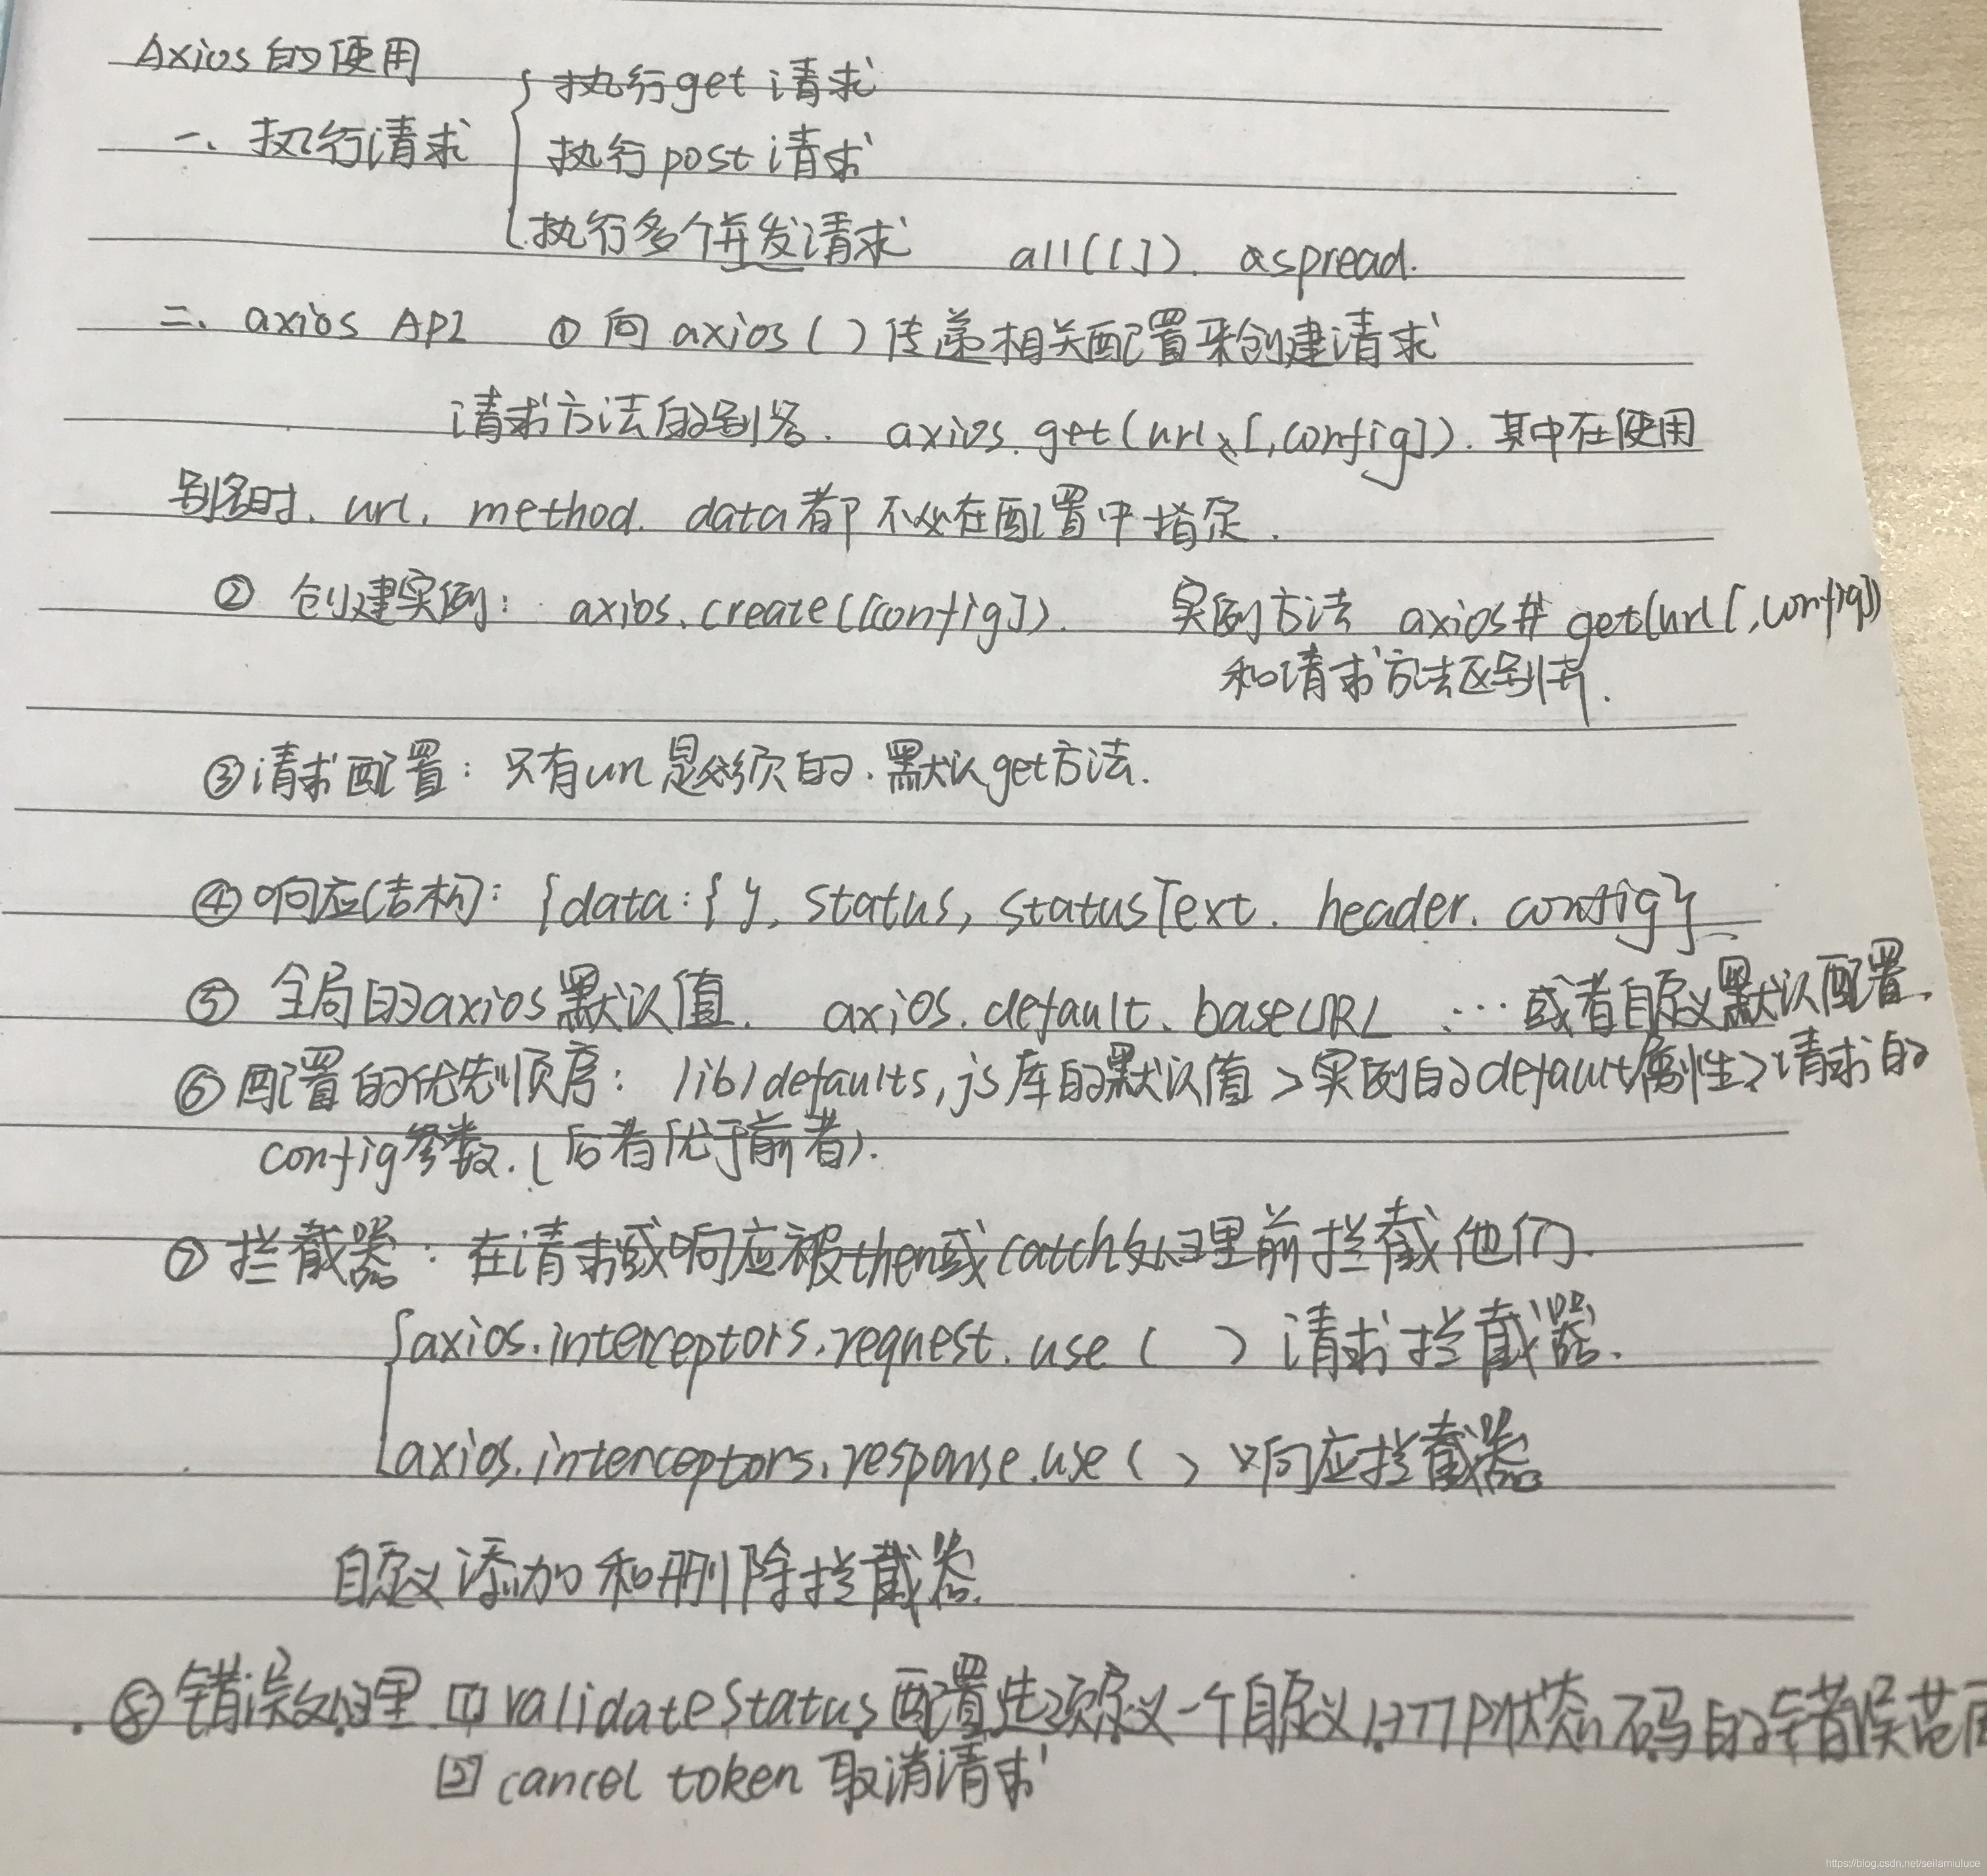 Axios的使用
一、执行请求
执行get请求
执行post请求
执行多个并发请求 all([]). aspread.
二、axios API ① 向axios()传递相关配置来创建请求
请求方法的别名. axios.get(url[,config]). 其中在使用
别名时. url. method. data都不必在配置中指定.
② 创建实例: axios.create([config]). 实例方法 axios# get(url[,config])
和请求方法区别开.
③请求配置: 只有url是必须的.默认get方法.
④响应结构: {data:{}, status, statusText. header. config}
⑤ 全局的axios默认值. axios.default.baseURL ...或者自定义默认配置.
⑥ 配置的优先顺序: lib/defaults.js库的默认值>实例的default属性>请求的
config参数.(后者优于前者).
⑦ 拦截器: 在请求或响应被then或catch处理前拦截他们.
axios.interceptors.request.use ( ) 请求拦截器.
axios.interceptors.response.use ( ) 响应拦截器
自定义添加和删除拦截器.
⑧错误处理 [1] validateStatus配置选项定义一个自定义HTTP状态码的错误范围
[2] cancel token 取消请求
https://blog.csdn.net/seilamiuluce